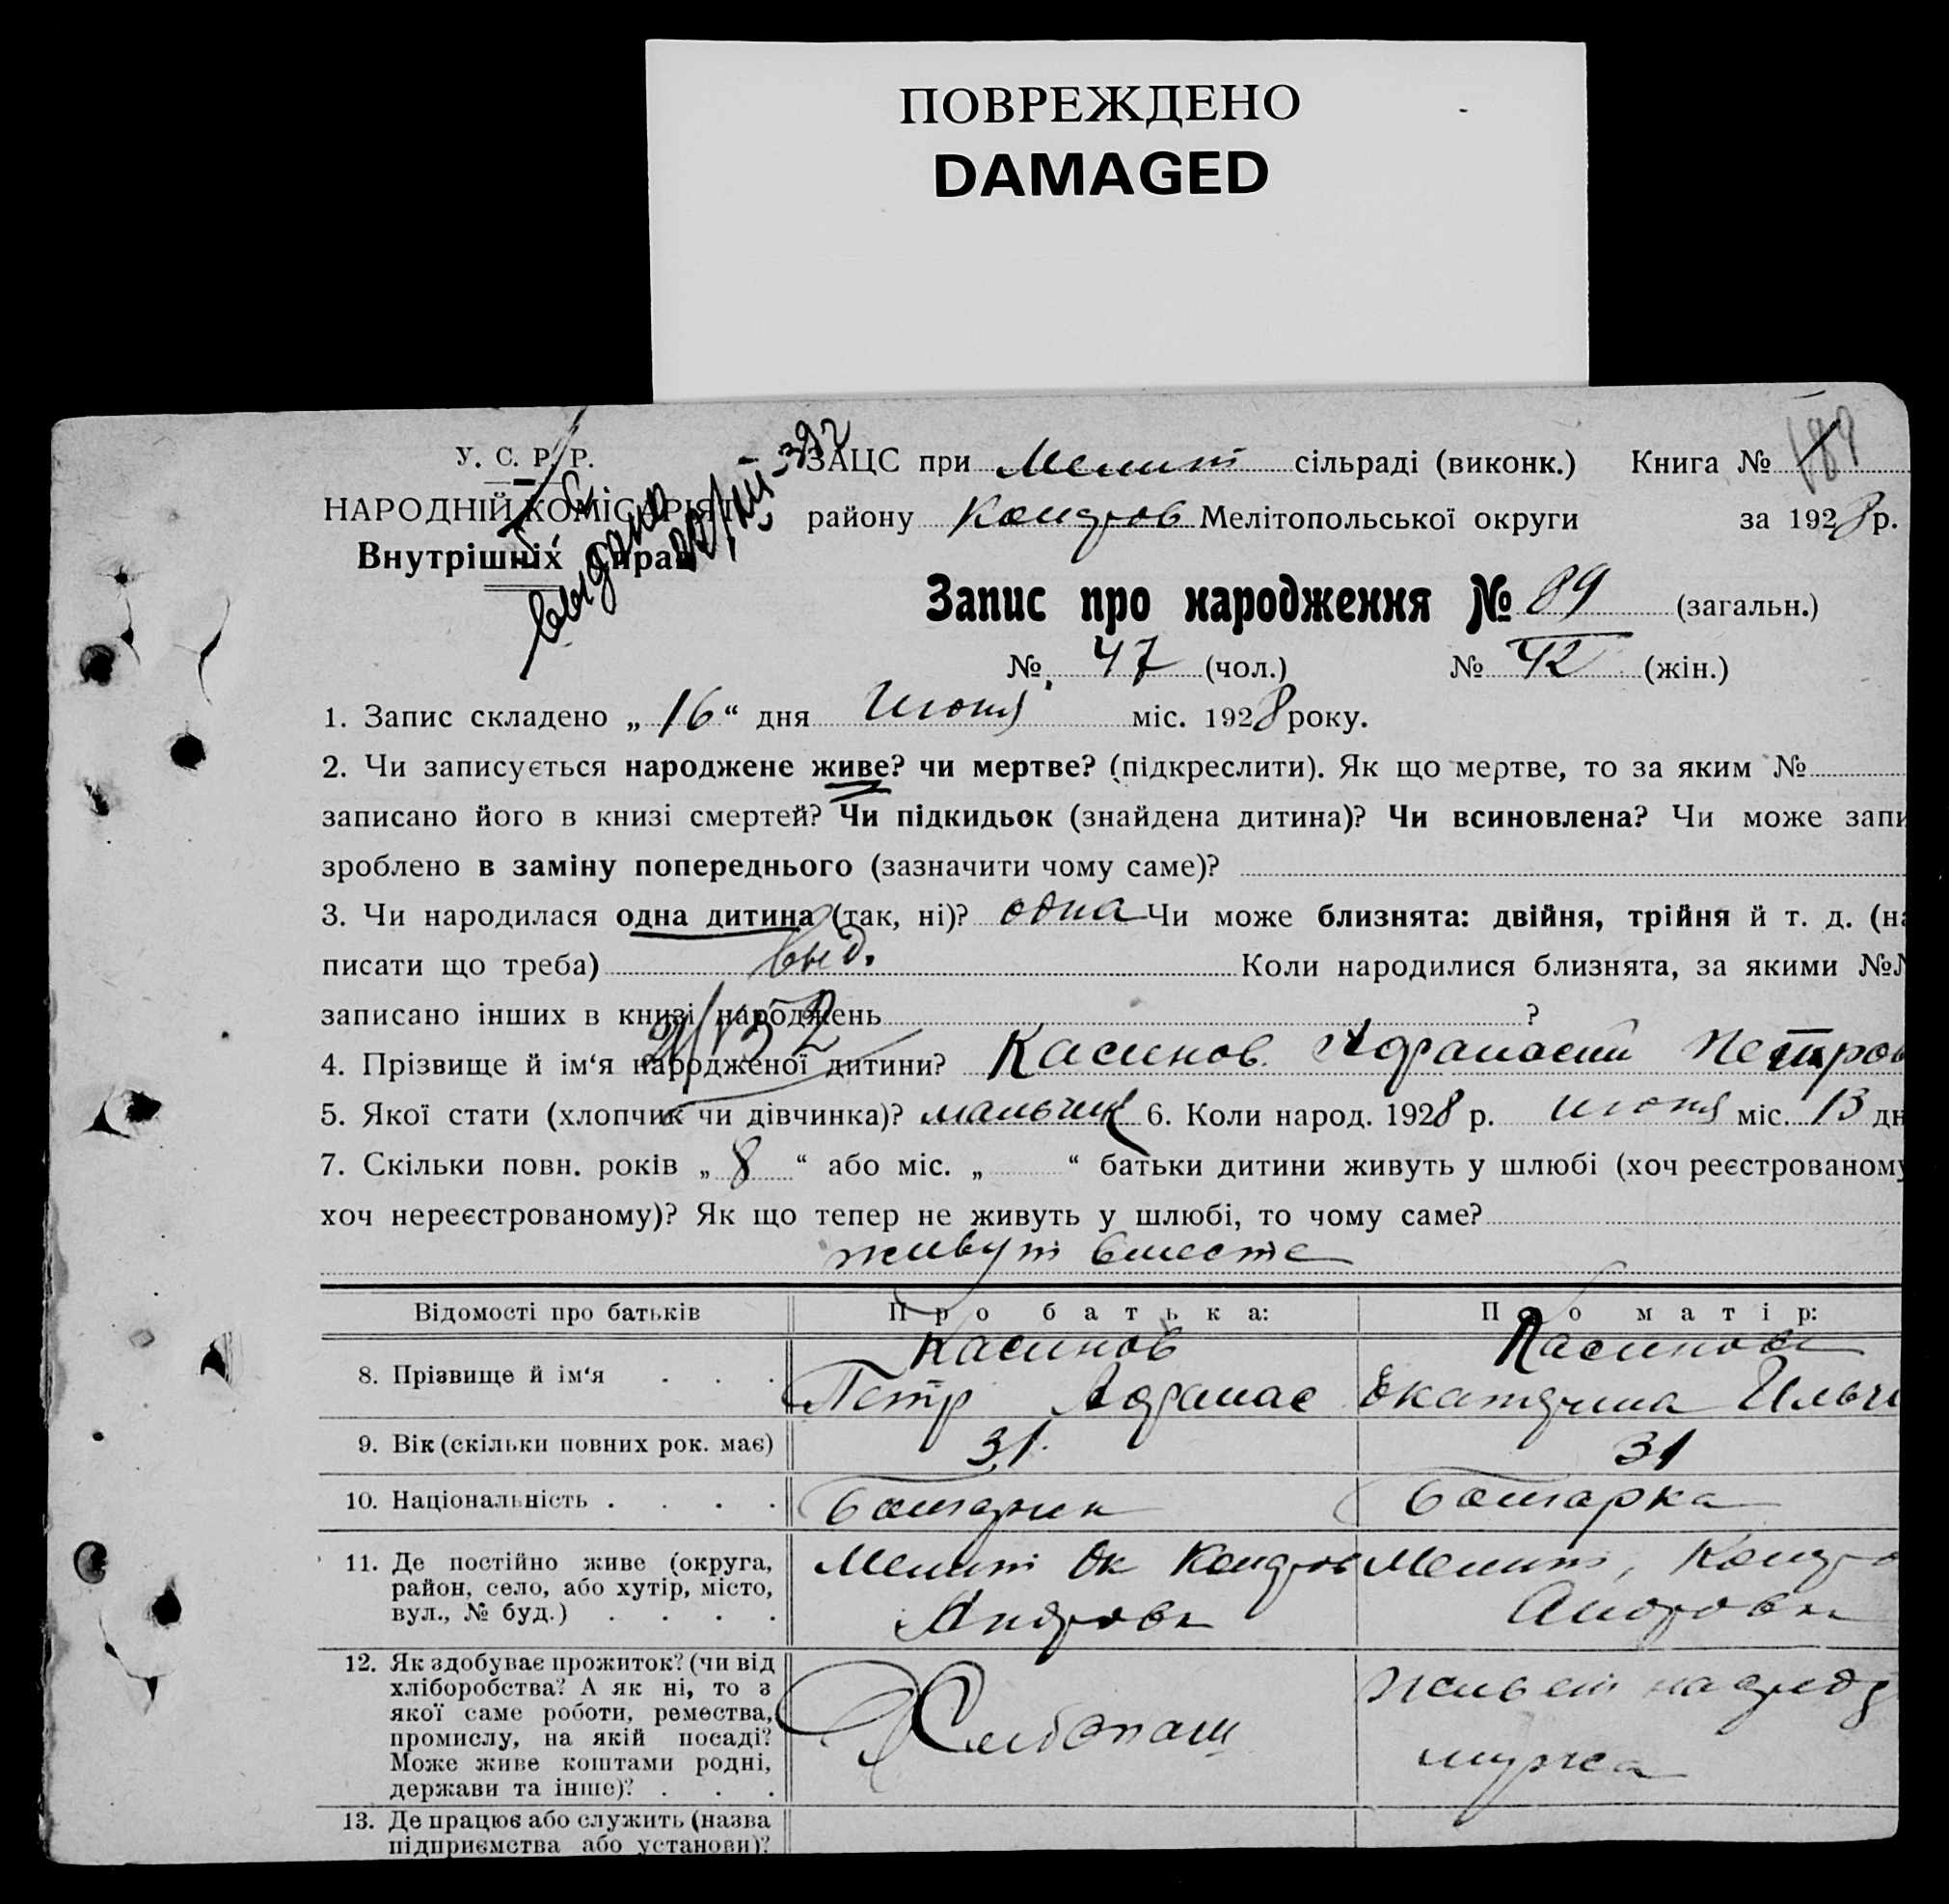 ПОВРЕЖДЕНО
DAMAGED
У. С. Р. Р.
НАРОДНІЙ КОМІСАРІЯТ
Внутрішніх Справ
выдано
ЗАЦС при Мелит сільраді (виконк.) Книга № 189
району Мелітопольської округи за 1928 р.
Запис про народження № 89 (загальн.)
№ 47 (чол.) № 42 (жін.)
1. Запис складено „ 16 “ дня Июня міс. 1928 року.
2. Чи записується народжене живе? чи мертве? (підкреслити). Як що мертве, то за яким №
записано його в книзі смертей? Чи підкидьок (знайдена дитина)? Чи всиновлена? Чи може запи
зроблено в заміну попереднього (зазначити чому саме)?
3. Чи народилася одна дитина (так, ні)? одна Чи може близнята: двійня, трійня й т. д. (на
писати що треба) выд. Коли народилися близнята, за якими №№
записано інших в книзі народжень ?
4. Прізвище й ім‘я народженої дитини? Касинов Афанасий Петров
5. Якої стати (хлопчик чи дівчинка)? мальчик 6. Коли народ. 1928 р. июня міс. 13 дн
7. Скільки повн. років „ 8 “ або міс. „ “ батьки дитини живуть у шлюбі (хоч реєстрованому
хоч нереєстрованому)? Як що тепер не живуть у шлюбі, то чому саме?
живут вместе
Відомості про батьків Про батька: Про матір:
8. Прізвище й ім‘я . . . Касинов Петр Афанас Касинова Екатерина Ильи
9. Вік (скільки повних рок. має) 31 31
10. Національність . . . . болгарин болгарка
11. Де постійно живе (округа,
район, село, або хутір, місто,
вул., № буд.) . . . .
Мелит Ок
Андровка
Мелит,
Андровка
12. Як здобуває прожиток? (чи від
хліборобства? А як ні, то з
якої саме роботи, ремества,
промислу, на якій посаді?
Може живе коштами родні,
держави та інше)? . . .
Хлебопаш
живет на сред
мужа
13. Де працює або служить (назва
підприємства або установи)?